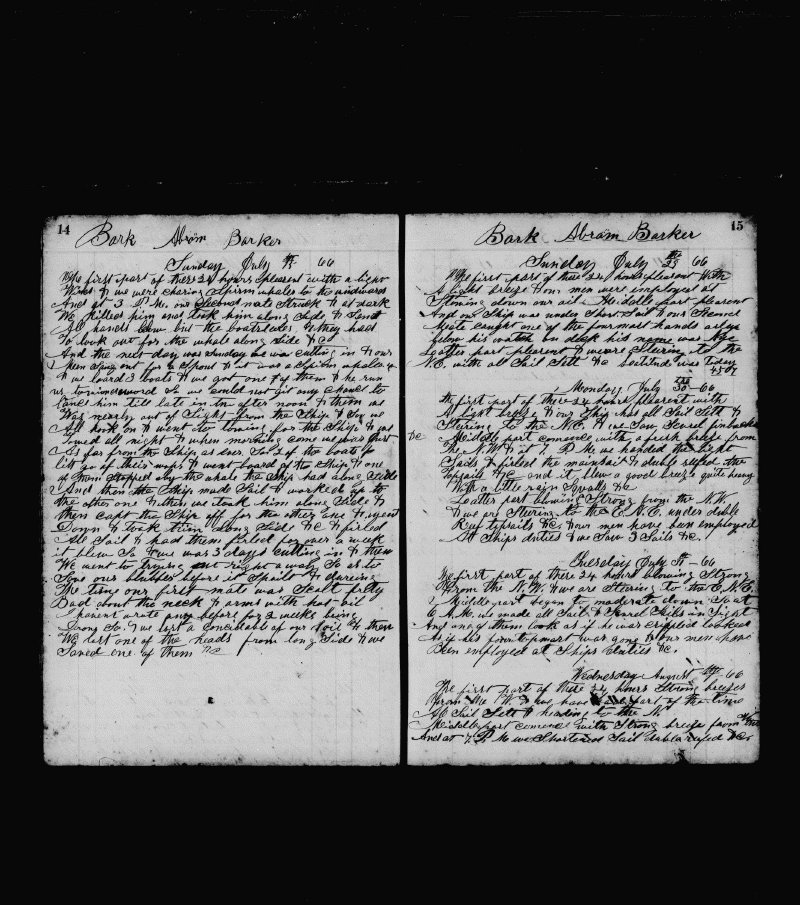 14
Bark Abram Barker
Sunday July 66
The first part of these 24 hours pleasent with a light
Wind & we were chasing Sperm whales to the windward
And at 3 P.M. our Second mate Struck & at dark
We killed him and took him along Side & Sent
All hands below but the boatsteers & they had
To look out for the whale along Side &C
And the next day was Sunday we was cutting in & our
Men Sung out for a Spout & it was a Sperm whale
& we lowerd 3 boats & we got one of them & he run
us to winword So we could not git any chance to
lance him till late in the after noon & then we
Was nearly out of Sight from the Ship & So we
All hook on & went to towing for the Ship & we
towed all night & when morning come we was just
As far from the Ship as ever So 2 of the boats
let go of their warps & went board of the Ship & one
of them stopped by the whale the Ship had along Side
And then the Ship made Sail & worked up to
the other one & then we took him along Side &
then kept the Ship off for the other one & went
Down & took him long Side &C & firled
All Sail & had them firled for over a week
it blew So & we was 3 days cutting in & then
We went to trying out right away So as to
Save our blubber before it Spoilt & dareing
The time our first mate was Scalt prity
Bad about the neck & arms with hot oil
I havent wrote any before for 2 weeks being
Drove So & we lost a of our oil & then
We lost one of the heads from long Side & we
Saved one of them &c
15
Bark Abram Barker
Sunday July 29 66
The first part of these 24 hours pleasent with
A light breeze & our men were employed at
Stowing down our oil Middle part pleasent
And our Ship was under Short Sail & our Second
Mate caught one of the fourmast hands asleep
below his watch on deck his name was
Latter part pleasent & we are Steering to the
N.E. with all Sail Sett &c Latitude was today
4507
Monday July 30 - 66
The first part of these 24 hours pleasent with
A light breeze & our Ship has all Sail Sett &
Steiring to the N.E. & we Saw Severl finbacks
&c Middle part comence with a fresh breeze from
The N.W. & at 7 P.M. we handed the light
Sails & firled the mainsail & duble reefed the
topsails &C and it blew a good breeze quite heavy
With a little rain Squalls &c
Latter part blowing Strong from the N.W.
& we are Steering to the E.N.E. under duble
Reef topsails &C & our men have ben employed
At Ships duties & we Saw 3 Sails &c.
Tuesday July 31 - 66
The first part of these 24 hours blowing Strong
From the N.W. & we are Steering to the E.N.E.
& Middle part began to moderate down So at
A.M. we made all Sail & Severl Sails in Sight
And one of them look as if he was crippled looked
As if his foretopmast was gone & our men have
Been employed at Ships duties &c.
Wednesday August 66
The first part of these 24 hours Strong breezes
From the W. & we have part of the time
All Sail Sett & heading to the N.
Middle part comence with Strong breeze from
And at 7 P.M. we Shortened Sail duble reefed &c